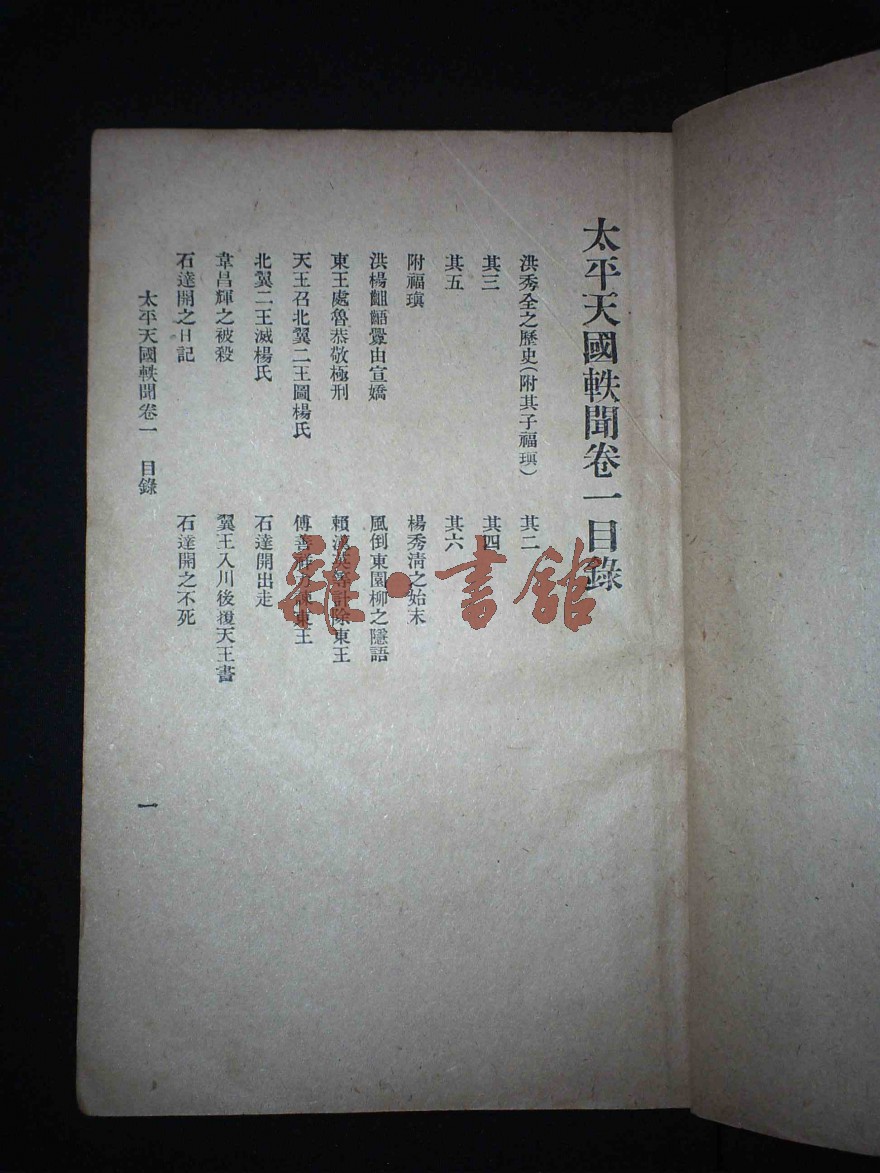 太平天國軼聞卷一目錄
洪秀全之歷史(附其子福瑱) 其二
其三 其四
其五 其六
附福瑱 楊秀清之始末
洪楊齟齬釁由宣嬌 風倒東園柳之隱語
東王處魯恭敬極刑 賴漢英 計除東王
天王召北翼二王圖楊氏 傅善祥 東王
北翼二王滅楊氏 石達開出走
韋昌輝之被殺 翼王入川後復天王書
石達開之日記 石達開之不死
太平天國軼聞卷一 目錄 一
雜·書館